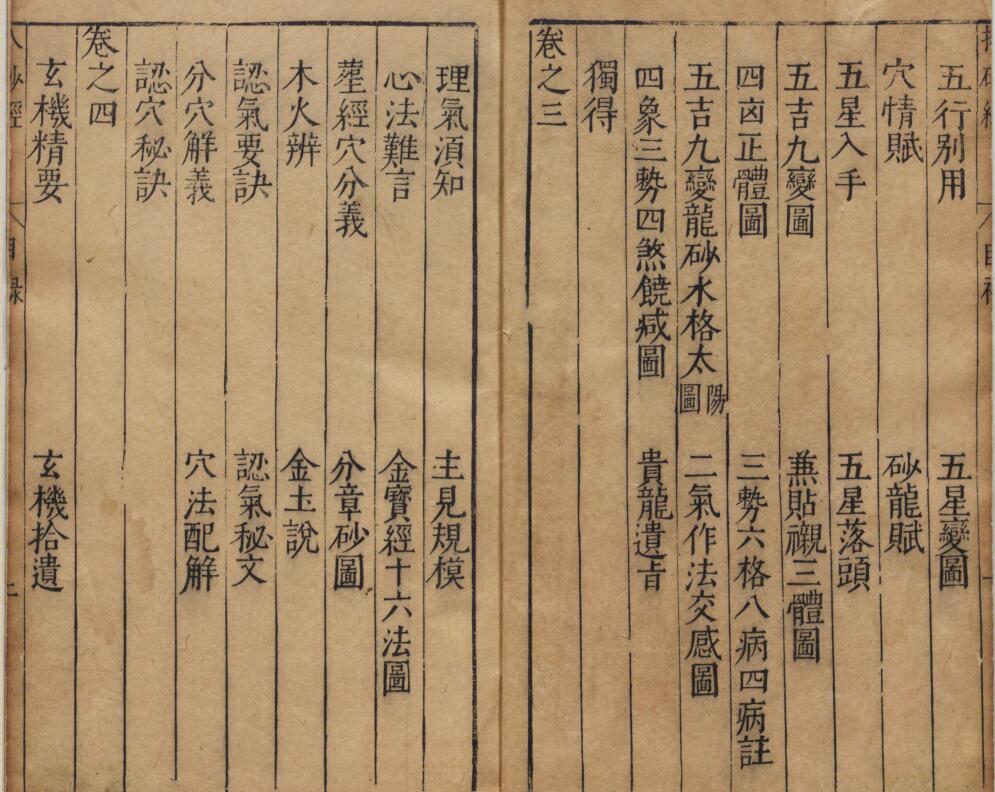 五行別用 五星變圖
穴情賦 砂龍賦
五星入手 五星落頭
五吉九變圖 兼貼襯三體圖
四凶正體圖 三勢六格八病四病註
五吉九變龍砂水格太陽圖 二氣作法交感圖
四象三勢四煞饒減圖 貴龍遺旨
獨得
卷之三
理氣須知 主見規模
心法難言 金寶經十六法圖
塟經穴分義 分章砂圖
木火辨 金土說
認氣要訣 認氣秘文
分穴解義 穴法配解
認穴秘訣
卷之四
玄機精要 玄機拾遺
目錄